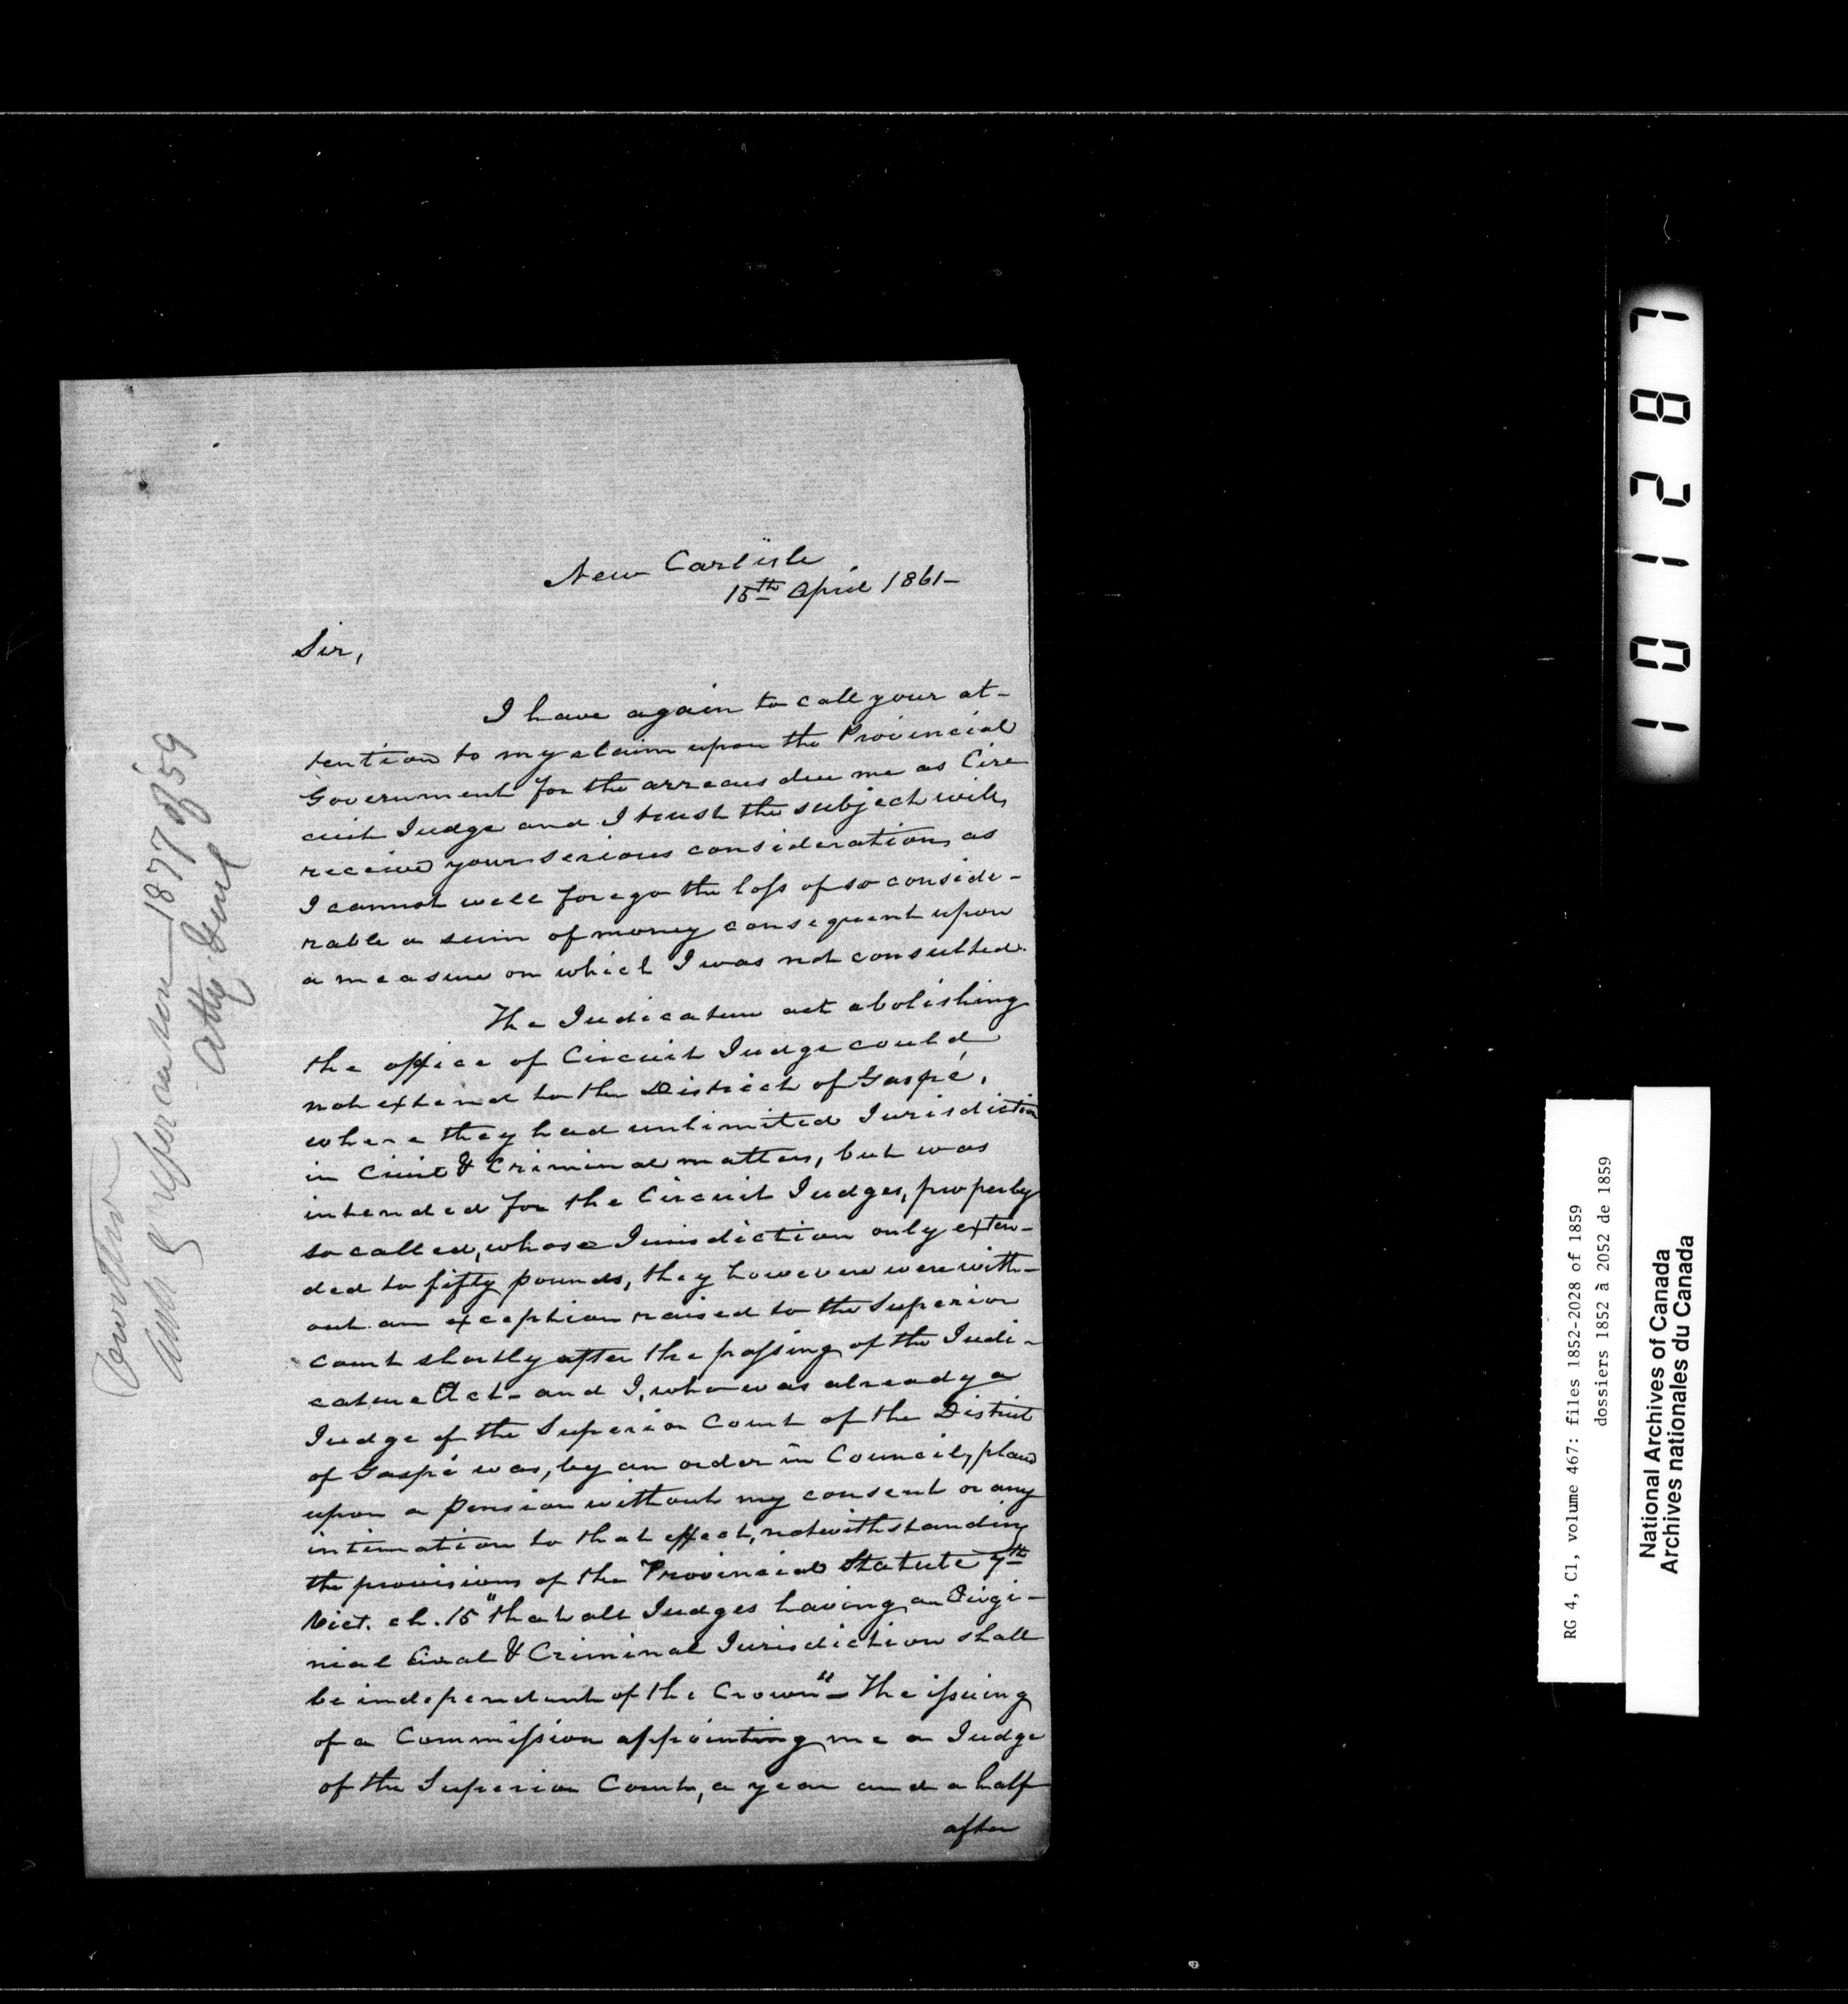 New Carlisle
15th April 1861–
Sir,
I have again to call your at-
tention to my claim upon the Provincial
Government for the arrears due me as Cir
cuit Judge and I trust the subject will
receive your serious consideration, as
I cannot well forego the loss of so conside-
rable a sum of money consequent upon
a measure on which I was not consulted.
The Judicature act abolishing
the office of Circuit Judge could
not extend to the District of Gaspé,
where they had unlimited Jurisdiction
in Civil & Criminal matters, but was
intended for the Circuit Judges, properly
so called, whose Jurisdiction only exten-
ded to fifty pounds, they however were with-
out an exception raised to the Superior
Court shortly after the passing of the Judi-
cature Act– and I, who was already a
Judge of the Superior Court of the District
of Gaspé was, by an order in Council, placed
upon a pension without my consent or any
intimation to that effect, notwithstanding
the provisions of the Provincial Statute 7th
Vict. ch. 15 "that all Judges having an Origi-
nial Civil & Criminal Jurisdiction shall
be independent of the Crown"– The issuing
of a Commission appointing me a Judge
of the Superior Court, a year and a half
after
with reference to 1877 of 59
Atty Genl
101287
RG 4, C1, volume 467: files 1852-2028 of 1859
dossiers 1852 à 2052 de 1859
National Archives of Canada
Archives nationales du Canada